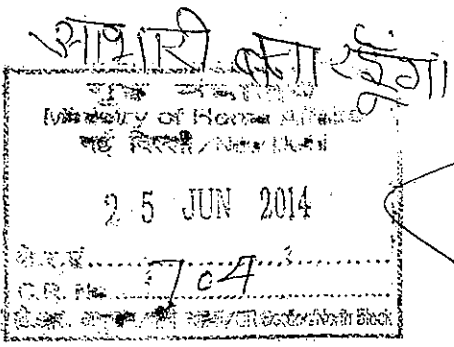 आभारी बना रहूँगा
गृह मंत्रालय
Ministry of Home Affairs
नई दिल्ली/New Delhi
25 JUN 2014
C.R. No. 704
North Block